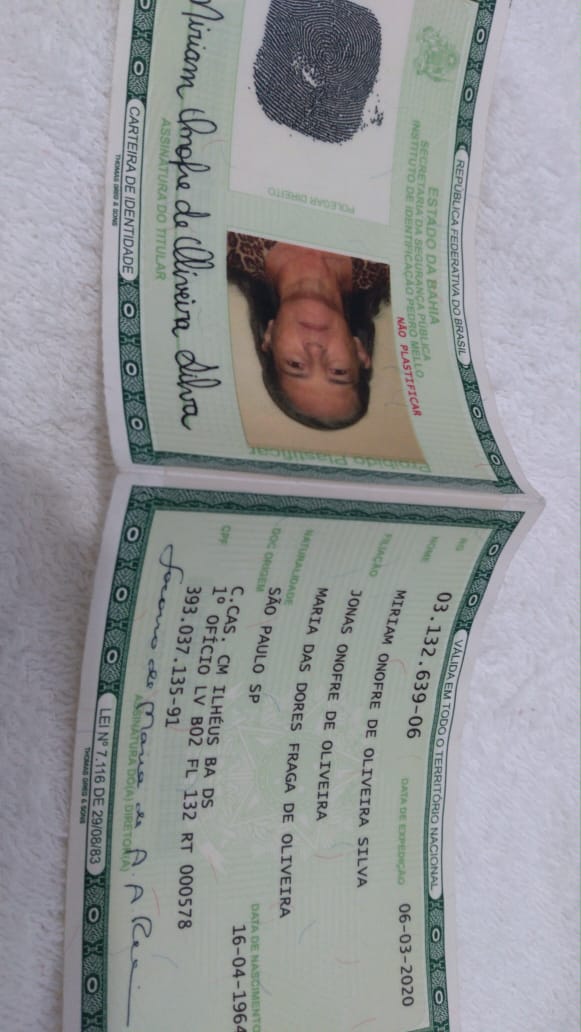 REPÚBLICA FEDERATIVA DO BRASIL
ESTADO DA BAHIA
SECRETARIA DA SEGURANÇA PÚBLICA
INSTITUTO DE IDENTIFICAÇÃO PEDRO MELLO
NÃO PLASTIFICAR
Proibido Plastificar
POLEGAR DIREITO
Miriam Onofre de Oliveira Silva
ASSINATURA DO TITULAR
CARTEIRA DE IDENTIDADE
THOMAS GREG & SONS
VÁLIDA EM TODO O TERRITÓRIO NACIONAL
RG 03.132.639-06 DATA DE EXPEDIÇÃO 06-03-2020
NOME MIRIAM ONOFRE DE OLIVEIRA SILVA
FILIAÇÃO JONAS ONOFRE DE OLIVEIRA
MARIA DAS DORES FRAGA DE OLIVEIRA
NATURALIDADE DATA DE NASCIMENTO
SÃO PAULO SP 16-04-1964
DOC ORIGEM C.CAS. CM ILHÉUS BA DS
1º OFÍCIO LV B02 FL 132 RT 000578
CPF 393.037.135-91
ASSINATURA DO(A) DIRETOR(A)
LEI Nº 7.116 DE 29/08/83
THOMAS GREG & SONS